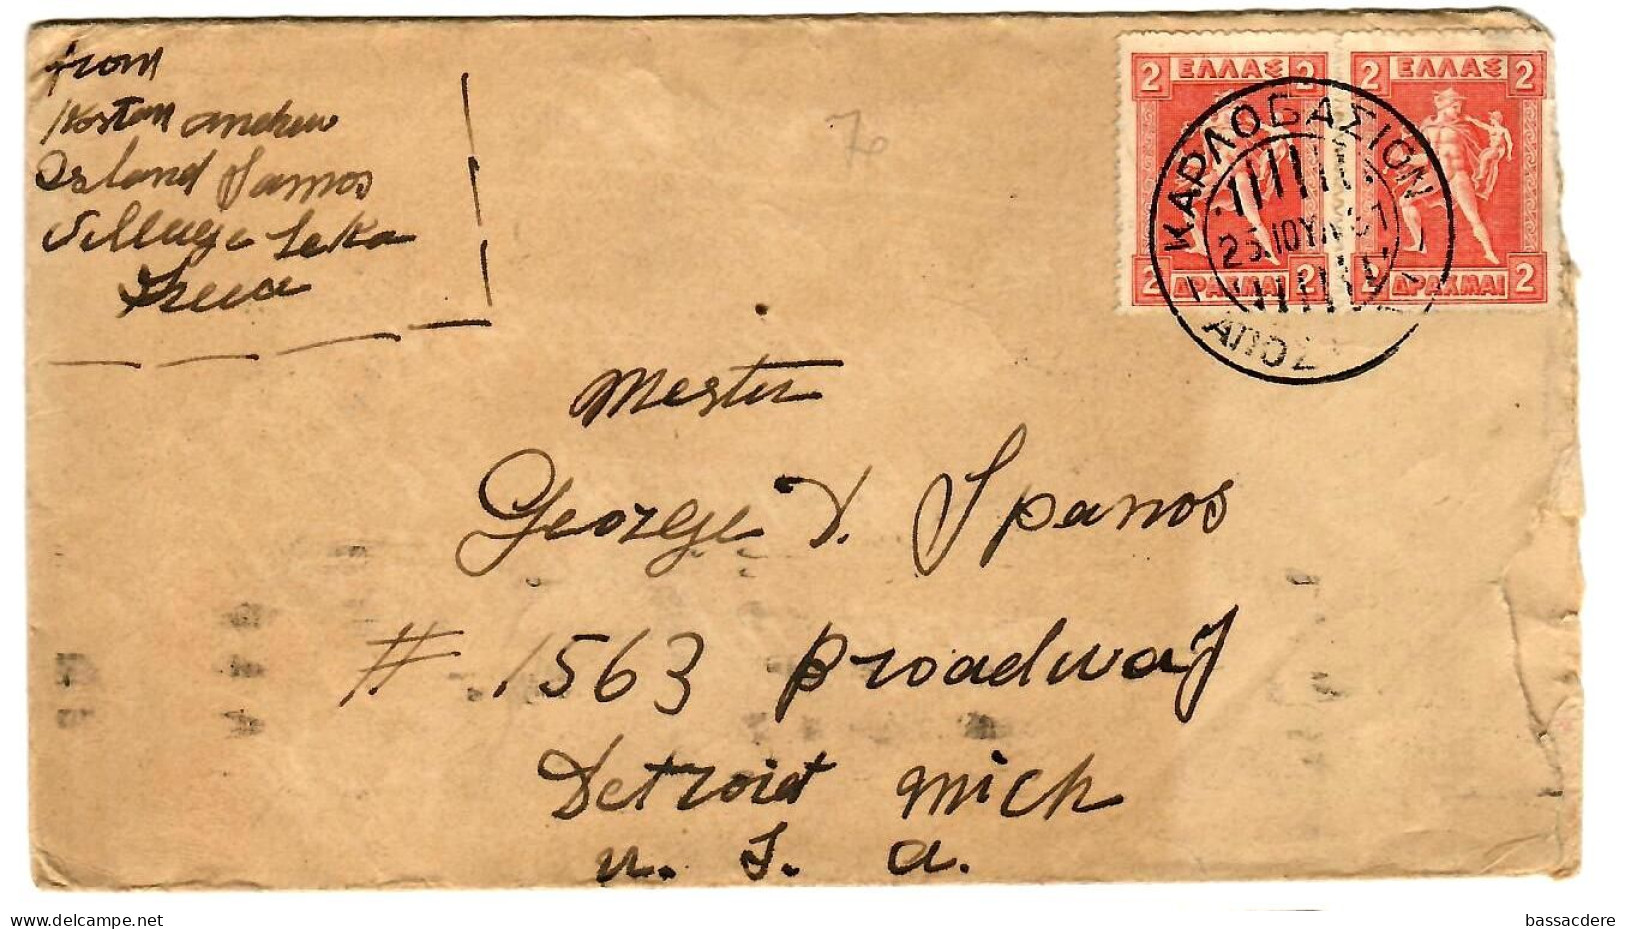 from
Koston andrew
Island Samos
Village Leka
Greece
70
2 ΕΛΛΑΣ 2
2 ΔΡΑΧΜΑΙ 2
2 ΕΛΛΑΣ 2
2 ΔΡΑΧΜΑΙ 2
ΚΑΡΛΟΒΑΣΙΟΝ
25 ΙΟΥΝ 31
ΑΠΟΣ
Mester
George D. Spanos
# 1563 Broadway
Detroit Mich
U. S. A.
www.delcampe.net
bassacdere